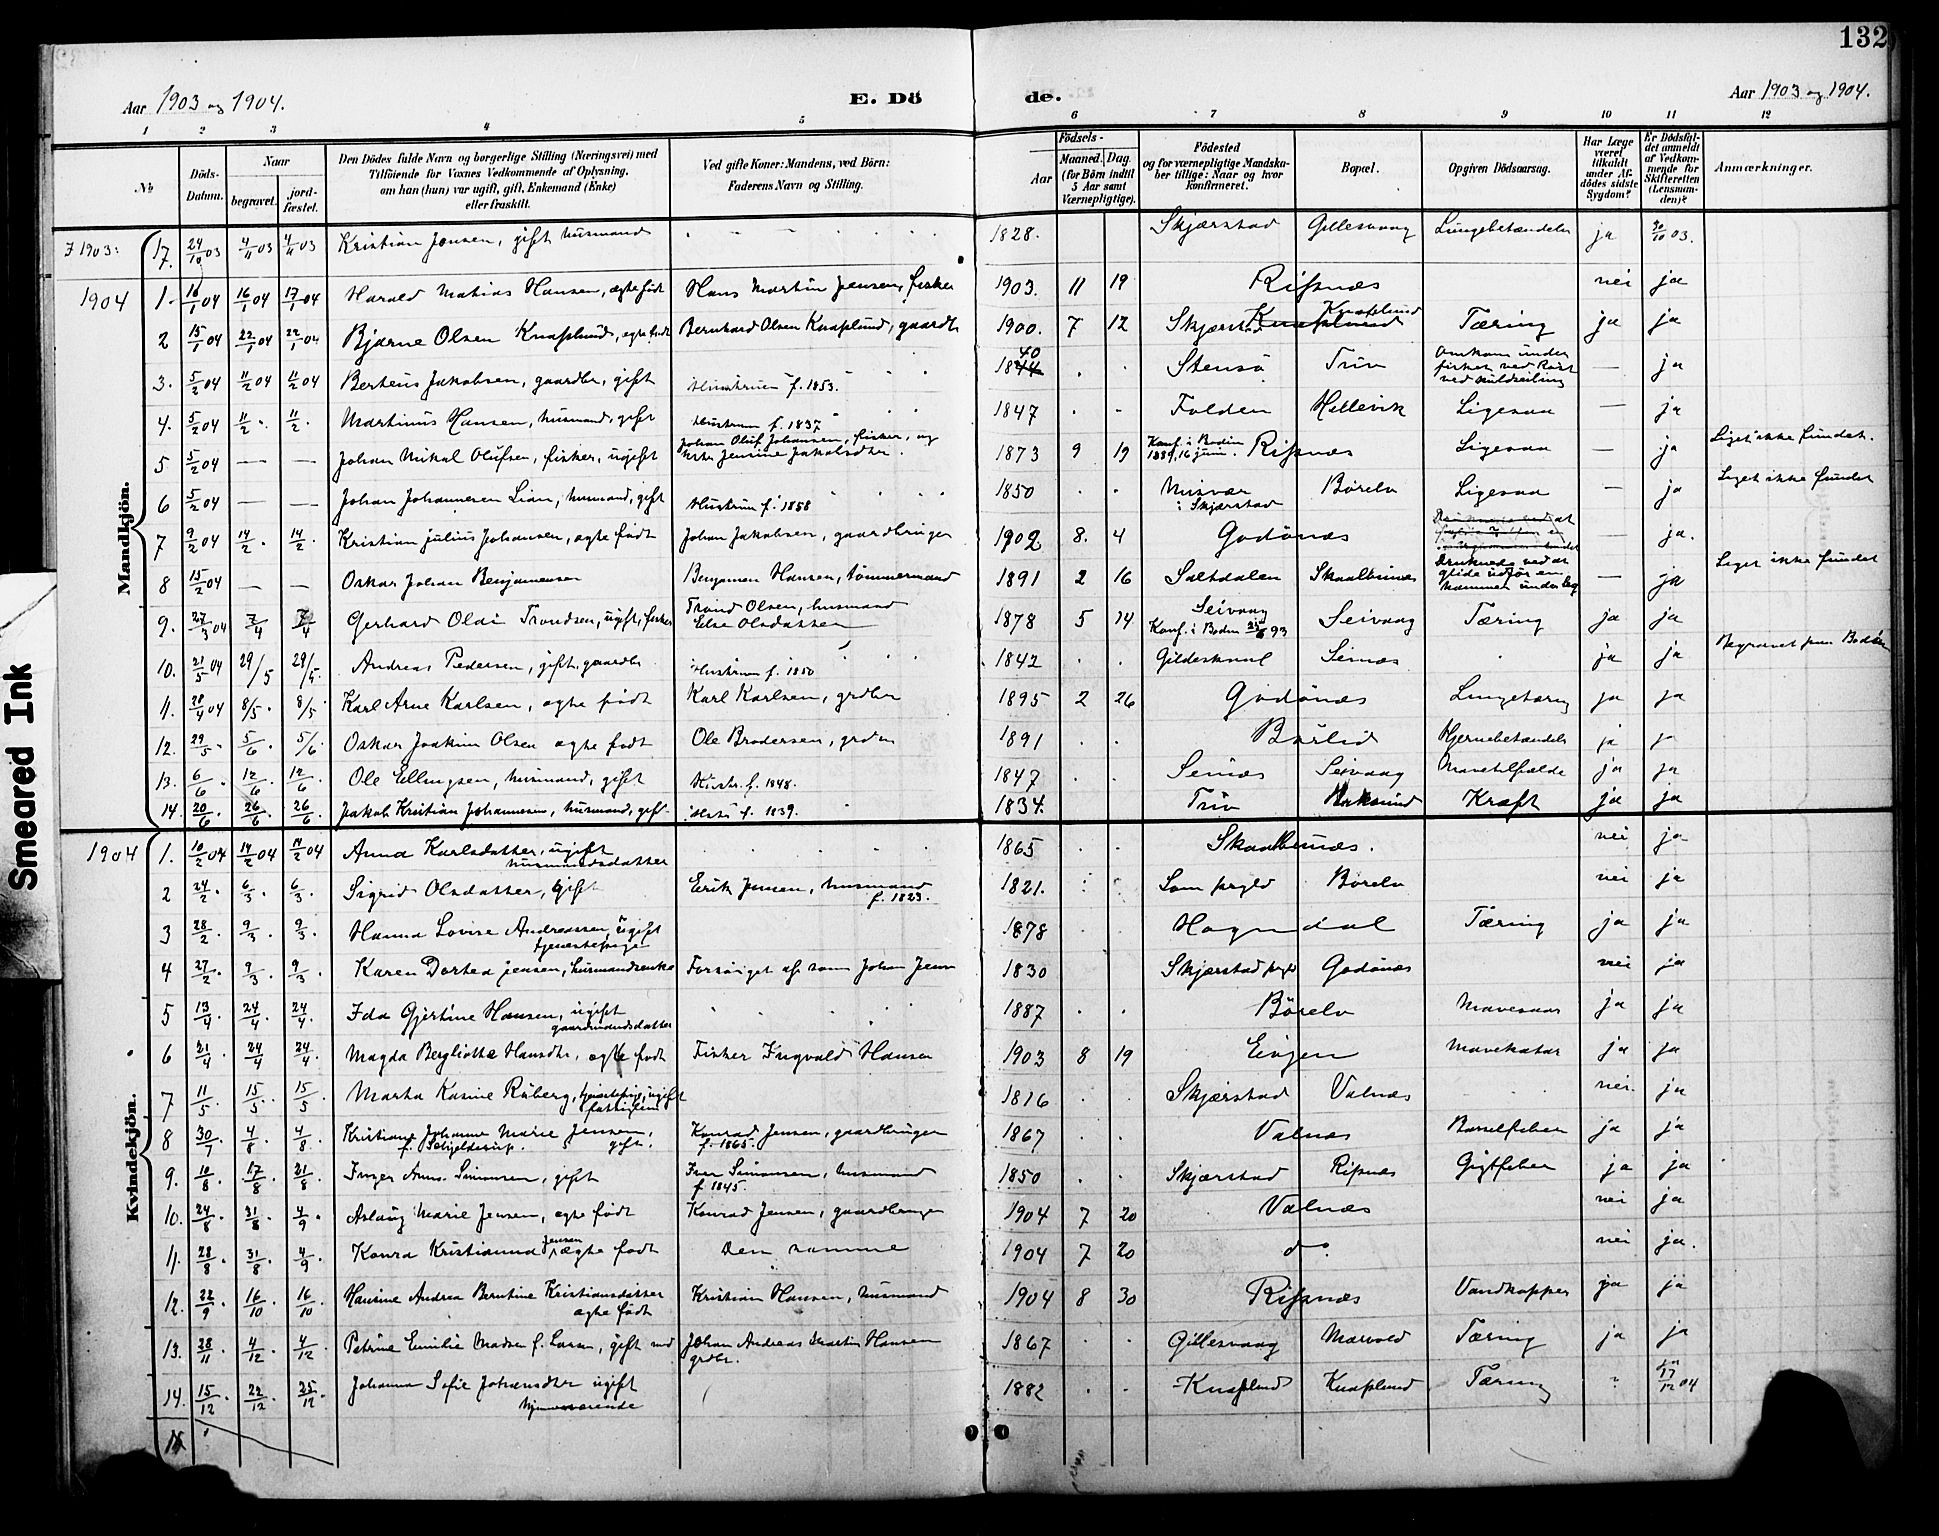 132
Aar 1903 og 1904.
E. Dö
de.
Aar 1903 og 1904.
1 2 3 4 5 6 7 8 9 10 11 12
No
Döds-Datum.
Naar
begravet.
jordfæstet.
Den Dödes fulde Navn og borgerlige Stilling (Næringsvei) med
Tilföiende for Voxnes Vedkommende af Oplysning.
om han (hun) var ugift, gift, Enkemand (Enke)
eller fraskilt.
Ved gifte Koner: Mandens, ved Börn:
Faderens Navn og Stilling.
Födsels-
Aar
Maaned. Dag.
(for Börn indtil
5 Aar samt
Værnepligtige).
Födested
og for værnepligtige Mandska-
ber tillige: Naar og hvor
konfirmeret.
Bopæl.
Opgiven Dödsaarsag.
Har Læge
været
tilkaldt
under Af-
dödes sidste
Sygdom?
Er Dödsfal-
det anmeldt
af Vedkom-
mende for
Skifteretten
(Lensman-
den)?
Anmærkninger.
Mandkjön.
I 1903: 17. 24/10 03 4/11 03 4/11 03 Kristian Jensen, gift husmand 1828. Skjærstad Gillesvaag Lungebetændelse ja 30/10 03.
1904 1. 10/1 04 16/1 04 17/1 04 Harald Matias Hansen, ægte født Hans Martin Jensen, fisker 1903. 11 19 Risnæs nei ja
2 15/1 04 22/1 04 22/1 04 Bjarne Olsen Knaplund, egte født Bernhard Olsen Knaplund, gaardbr 1900. 7 12 Skjærstad Knaplund Tæring ja ja
3. 5/2 04 11/2 04 11/2 04 Berteus Jakobsen, gaardbr, gift Hustruen f. 1853. 1840 Stensø Tuv Omkom under
fisket ved Røst
ved kuldseiling — ja
4. 5/2 04 11/2 11/2 Martinus Hansen, husmand, gift Hustruen f. 1837 1847 Folden Hellevik Ligesaa — ja
5 5/2 04 — — Johan Mikal Olufsen, fisker, ugift Johan Oluf Johansen, fisker, og
Jensine Jakobsdtr. 1873 9 19 Konf. i Bodin
16 juni. Risnæs Ligesaa — ja Liget ikke fundet.
6 5/2 04 — — Johan Johannesen Lian, husmand, gift Hustruen f. 1858 1850 Misvær
i Skjærstad Børelv Ligesaa — ja Liget ikke fundet
7 9/2 04 14/2 14/2 Kristian Julius Johansen, ægte født Johan Jakobsen, gaardbruger 1902 8. 4 Godønæs — ja.
8 15/2 04 — — Oskar Johan Benjamensen Benjamen Hansen, tømmermand 1891 2 16 Saltdalen Skaalbunæs Druknede ved at
glide udfor en
hammer under leg — ja Liget ikke fundet
9. 27/3 04 7/4 7/4 Gerhard Olai Trondsen, ugift, fisker Trond Olsen, husmand
Else Olsdatter 1878 5 14 Seivaag
Konf. i Bodin 93 Seivaag Tæring ja ja
10. 21/5 04 29/5 29/5. Andreas Pedersen, gift, gaardbr Hustruen f. 1850 1842 Gildeskaal Seines ja ja Begravet paa Bodin
11. 28/4 04 8/5 8/5 Karl Arne Karlsen, ægte født Karl Karlsen, grdbr 1895 2 26 Godønæs Lungetæring ja ja
12. 29/5 5/6 5/6 Oskar Joakim Olsen ægte født Ole Brodersen, grdbr 1891 Børlid Hjernebetændelse ja ja
13. 6/6 12/6 12/6 Ole Ellingsen, husmand, gift Hustr. f. 1848. 1847 Seines Seivaag Mavetilfælde ja ja
14. 20/6 26/6 26/6 Jakob Kristian Johannesen, husmand, gift. f. 1839. 1834. Tuv Kræft ja ja
Kvindekjön.
1904 1. 10/2 04 14/2 04 14/2 04 Anna Karlsdatter, ugift
husmandsdatter 1865 Skaalbunæs. nei ja
2 24/2 6/3 6/3 Sigrid Olsdatter, gift Erik Jensen, husmand
f. 1823. 1821. Børelv nei ja
3 28/2 9/3 9/3 Hanna Lovise Andreassen, ugift
tjenestepige 1878 Hogndal Tæring ja ja
4 27/2 9/3 9/3 Karen Dortea Jensen, husmandsenke Forsørget af søn Johan Jensen 1830 Skjærstad prgld Godønæs nei ja
5 13/4 24/4 24/4 Ida Gjertine Hansen, ugift
gaardmandsdatter 1887 Børelv Mavesaar ja ja
6 21/4 24/4 24/4 Magda Bergliotte Hansdtr, ægte født Fisker Ingvald Hansen 1903 8 19 Evjen Mavekatar ja ja
7 11/5 15/5 15/5 Marta Kasine Ruberg, tjenestepige, ugift
fattiglem 1816 Skjærstad Valnæs nei ja
8 30/7 4/8 4/8 Kristiane Johanne Marie Jensen,
f. Schjelderup. gift. Konrad Jensen, gaardbruger
f. 1865. 1867 Valnæs Barselfeber ja ja
9. 10/8 17/8 21/8 Inger Anna Simonsen, gift Iver Simonsen, husmand
f. 1845. 1850 Skjærstad Risnæs Gigtfeber ja ja
10. 24/8 31/8 4/9 Aslaug Marie Jensen, ægte født Konrad Jensen, gaardbruger 1904 7 20 Valnæs nei ja
11. 28/8 31/8 4/9 Konra Kristianna Jensen, ægte født Den samme 1904 7 20 do. nei ja.
12. 22/9 16/10 16/10 Hansine Andrea Berntine Kristiansdatter
ægte født Kristian Hansen, husmand 1904 8 30 Risnæs Vandkopper ja ja
13. 28/11 4/12 4/12 Petrine Emilie Madsen f. Larsen, gift med Johan Andreas Martin Hansen
grdbr. 1867 Gillesvaag Marvold Tæring ja ja
14. 15/12 22/12 25/12 Johanna Sofie Johansdtr ugift
hjemmeværende 1882 Knaplund Knaplund Tæring ? ja 17/12 04
Smeared Ink